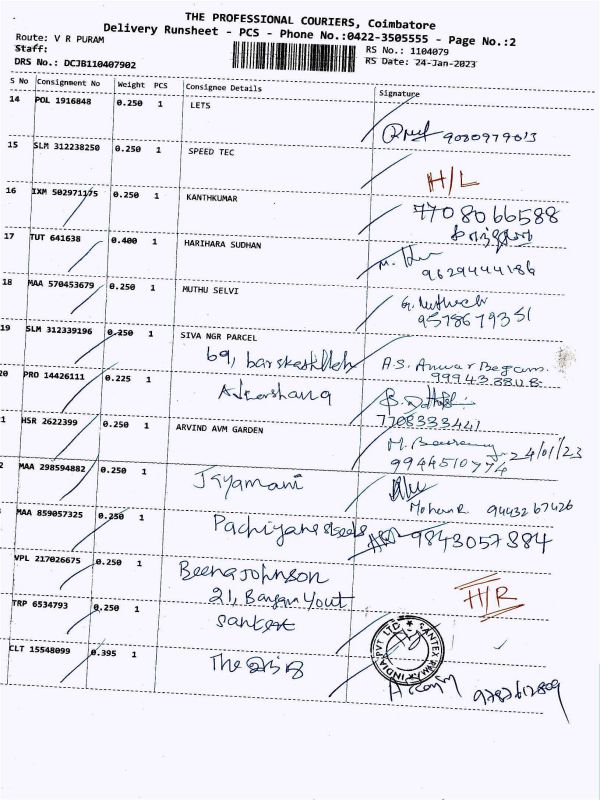 THE PROFESSIONAL COURIERS, Coimbatore
Delivery Runsheet - PCS - Phone No.:0422-3505555 - Page No.:2
Route: V R PURAM
Staff:
DRS No.: DCJB110407902
RS No.: 1104079
RS Date: 24-Jan-2023
S No Consignment No Weight PCS Consignee Details Signature
14 POL 1916848 0.250 1 LETS
9080979013
15 SLM 312238250 0.250 1 SPEED TEC
H/L
16 IXM 502971175 0.250 1 KANTHKUMAR
7708066588
17 TUT 641638 0.400 1 HARIHARA SUDHAN
9629444186
18 MAA 570453679 0.250 1 MUTHU SELVI
9578679351
19 SLM 312339196 0.250 1 SIVA NGR PARCEL
69,
A.S. Anwar Begam
20 PRO 14426111 0.225 1
7708333441
1 HSR 2622399 0.250 1 ARVIND AVM GARDEN
24/01/23
9944510774
2 MAA 298594882 0.250 1 Jayamani
Mohan R 9443267426
MAA 859057325 0.250 1
9843057384
VPL 217026675 0.250 1 Beena Johnson
21,
H/R
TRP 6534793 0.250 1
CLT 15548099 0.395 1 The
9787612809